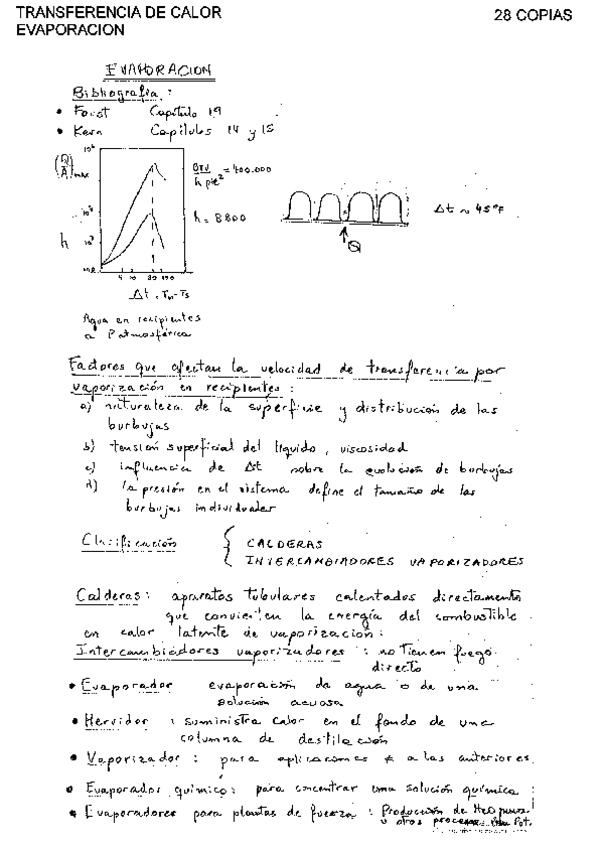 TRANSFERENCIA DE CALOR
28 COPIAS
EVAPORACION
EVAPORACION
Bibliografia :
• Foust Capitulo 19
• Kern Capitulos 14 y 15
(Q/A)max
BTU/h pie² = 400.000
h
h = 8800
Δt ~ 45°F
Q
5 10
Δt = Tw - Ts
Agua en recipientes
a P atmosférica
Factores que afectan la velocidad de transferencia por
vaporización en recipientes :
a) naturaleza de la superficie y distribución de las
burbujas
b) tensión superficial del líquido, viscosidad
c) influencia de Δt sobre la evolución de burbujas
d) la presión en el sistema define el tamaño de las
burbujas individuales
Clasificación
CALDERAS
INTERCAMBIADORES VAPORIZADORES
Calderas: aparatos tubulares calentados directamente
que convierten la energía del combustible
en calor latente de vaporización:
Intercambiadores vaporizadores : no tienen fuego
directo
• Evaporador evaporación de agua o de una
solución acuosa
• Hervidor : suministra calor en el fondo de una
columna de destilación
• Vaporizador : para aplicaciones ≠ a las anteriores.
• Evaporador químico: para concentrar una solución química
• Evaporadores para plantas de fuerza : Producción de H2O pura
u otros procesos